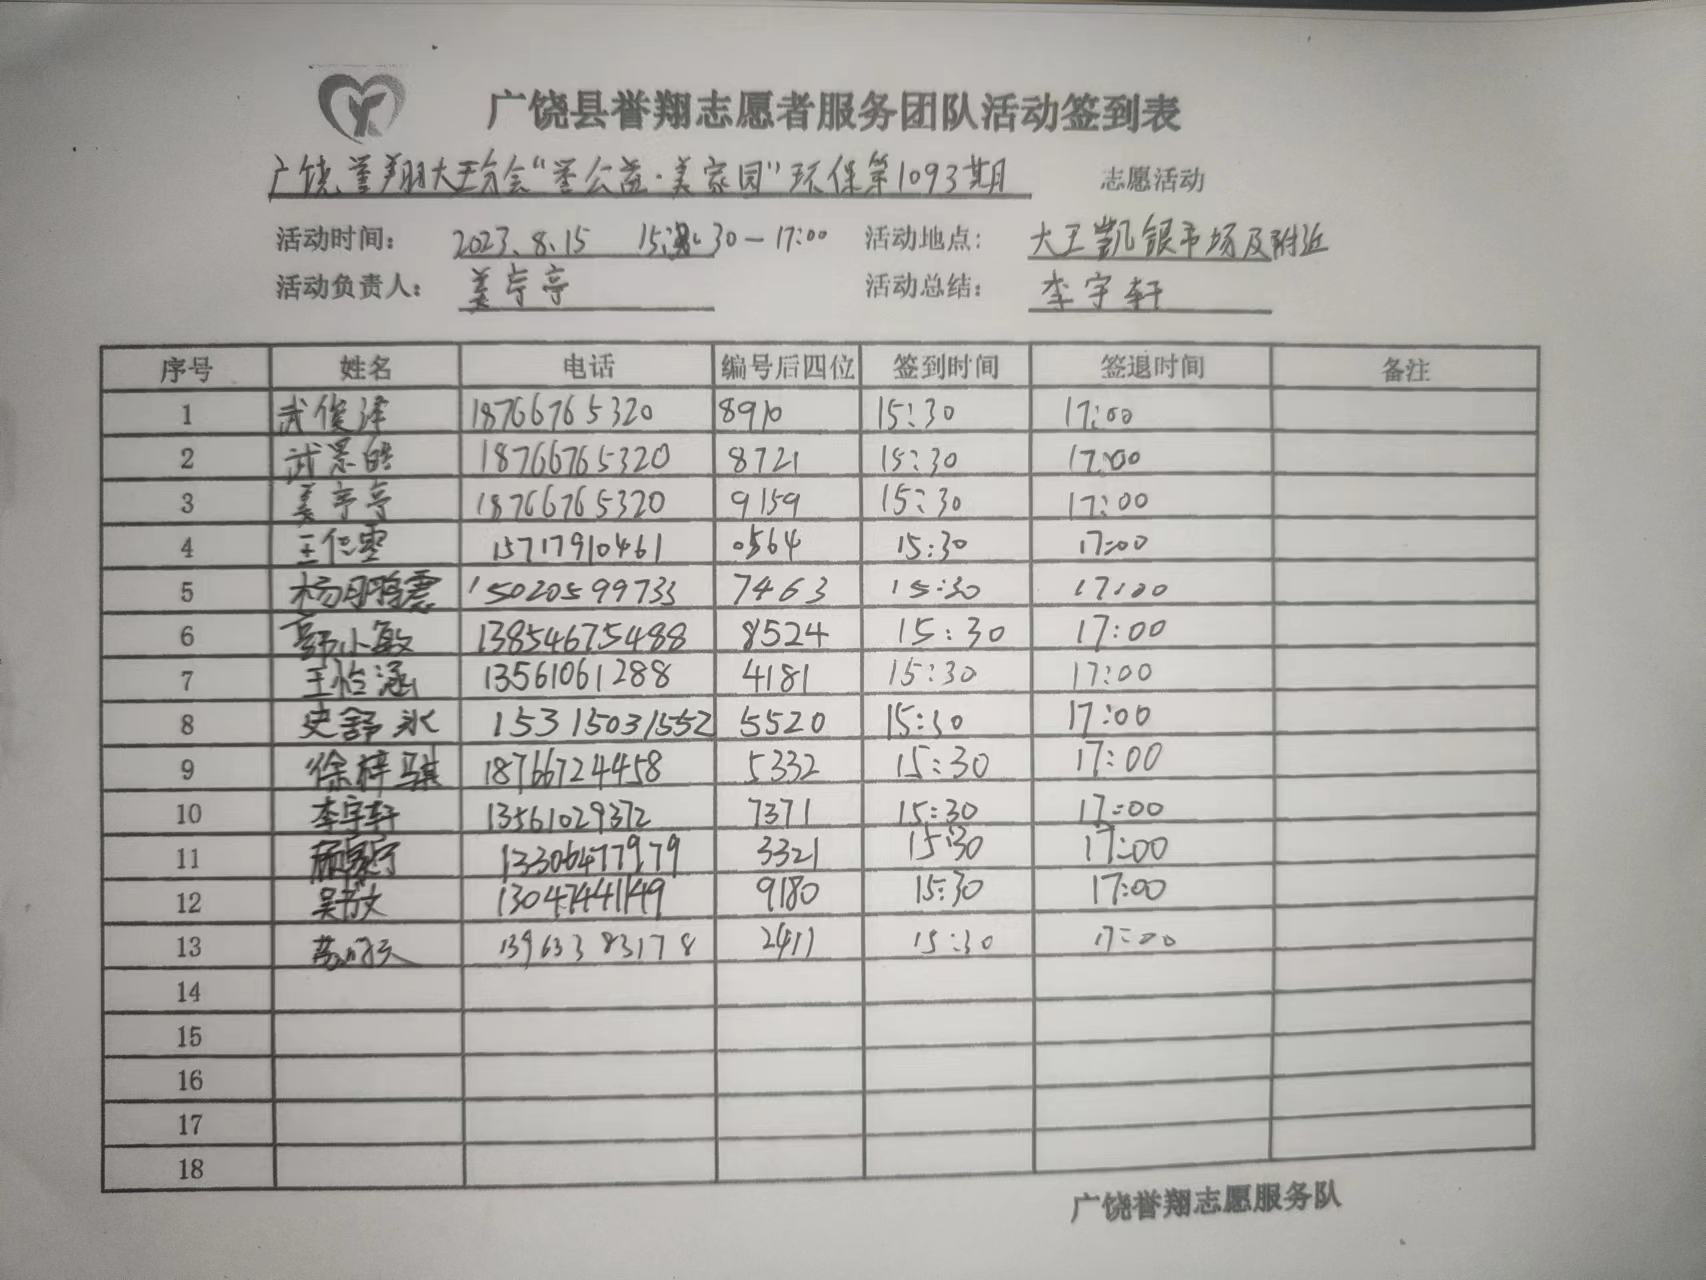 广饶县誉翔志愿者服务团队活动签到表
广饶誉翔大王分会“誉公益·美家园”环保第1093期 志愿活动
活动时间： 2023.8.15 15:30—17:00 活动地点： 大王凯银市场及附近
活动负责人： 姜亭亭 活动总结： 李宇轩
序号 姓名 电话 编号后四位 签到时间 签退时间 备注
1 武俊泽 18766765320 8910 15:30 17:00
2 武景皓 18766765320 8721 15:30 17:00
3 姜亭亭 18766765320 9159 15:30 17:00
4 15717910461 0564 15:30 17:00
5 15020599733 7463 15:30 17:00
6 13854675488 8524 15:30 17:00
7 王怡涵 13561061288 4181 15:30 17:00
8 史舒冰 15315031552 5520 15:30 17:00
9 徐梓骐 18766724458 5332 15:30 17:00
10 李宇轩 13561029372 7371 15:30 17:00
11 13306477979 3321 15:30 17:00
12 13047441149 9180 15:30 17:00
13 13963383178 2411 15:30 17:00
14
15
16
17
18
广饶誉翔志愿服务队